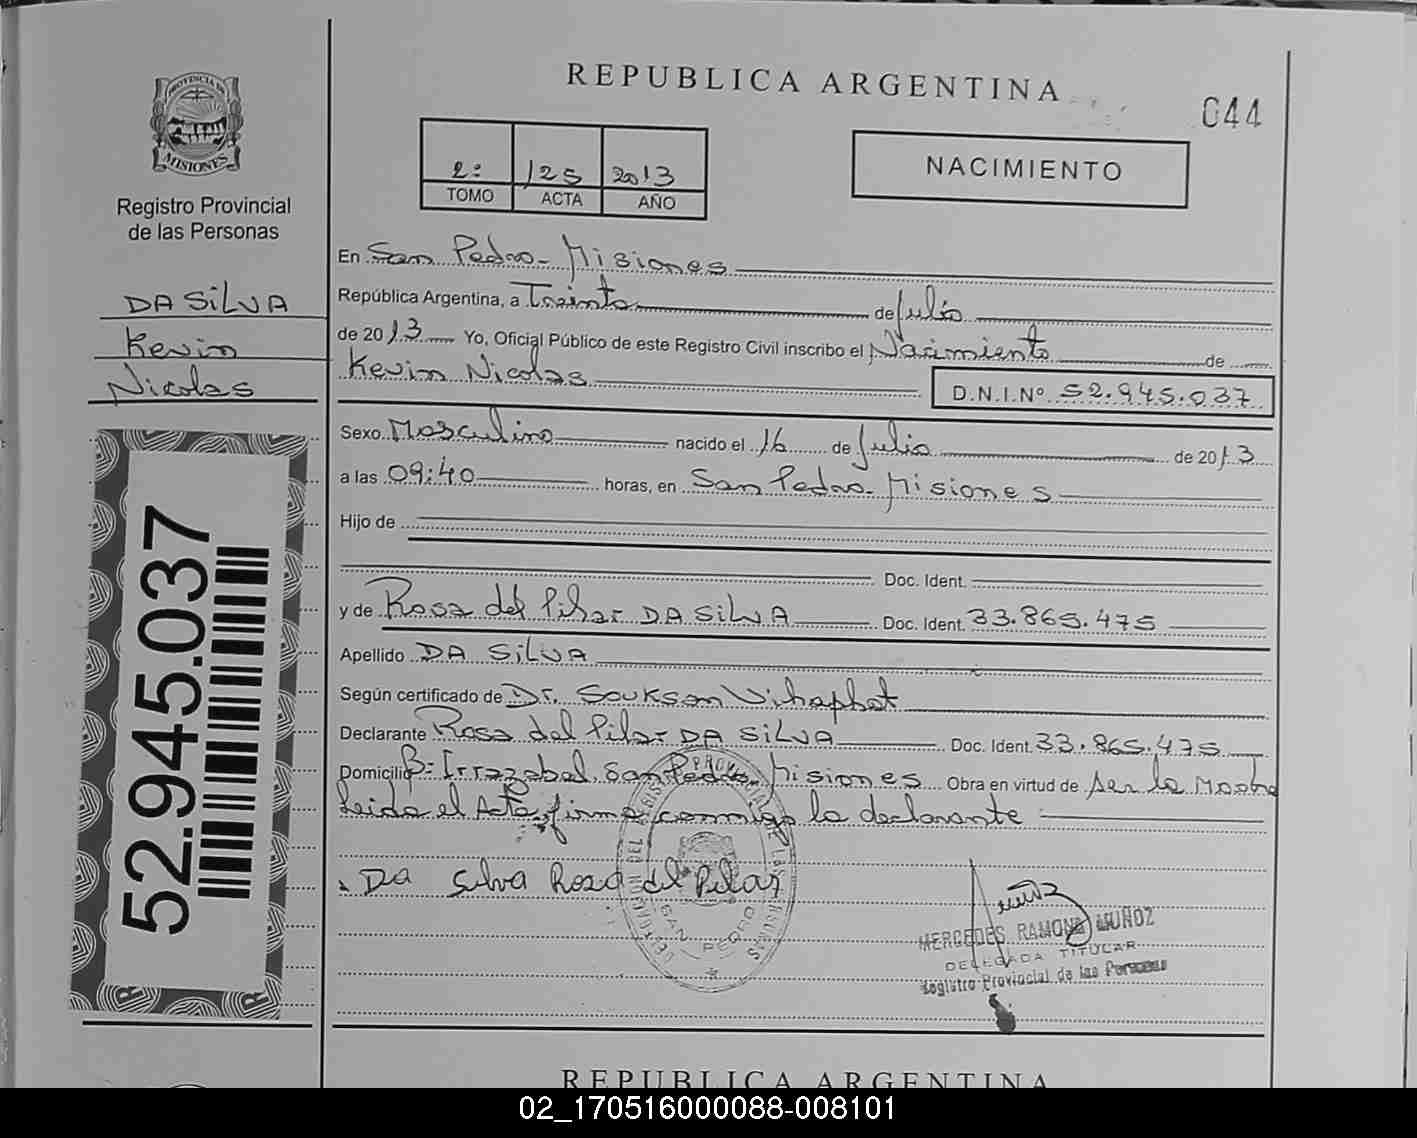 REPUBLICA ARGENTINA
044
PROVINCIA DE
MISIONES
Registro Provincial
de las Personas
DA SILVA
Kevin
Nicolas
52.945.037
2: 125 2013
TOMO ACTA AÑO
NACIMIENTO
En San Pedro - Misiones
República Argentina, a Treinta de Julio
de 2013 Yo, Oficial Público de este Registro Civil inscribo el Nacimiento de
Kevin Nicolas D.N.I.Nº 52.945.037
Sexo Masculino nacido el 16 de Julio de 2013
a las 09:40 horas, en San Pedro - Misiones
Hijo de
Doc. Ident.
y de Rosa del Pilar DA SILVA Doc. Ident. 33.865.475
Apellido DA SILVA
Según certificado de Dr. Souksan Vihaphat
Declarante Rosa del Pilar DA SILVA Doc. Ident. 33.865.475
Domicilio Bº Irrazabal, San Pedro, Misiones Obra en virtud de ser la Madre
Leida el Acta, firma conmigo la declarante
Da Silva Rosa del Pilar
SAN PEDRO
MERCEDES RAMONA MUÑOZ
DELEGADA TITULAR
Registro Provincial de las Personas
REPUBLICA ARGENTINA
02_170516000088-008101